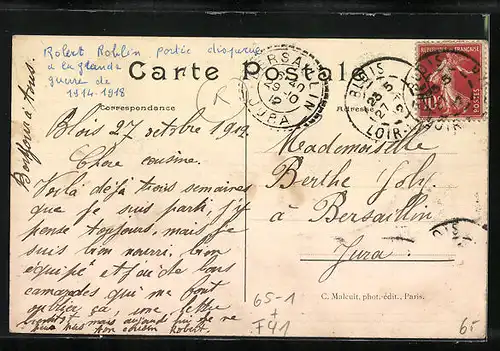 Robert Roblin portée disparue
à la grande
guerre de
1914-1918
Carte Postale
Correspondance
Adresse
BERSAILLIN
JURA
BLOIS
LOIR-
RÉPUBLIQUE FRANÇAISE
10
R
Bonjour à tous.
Blois 27 octobre 1912
Chère cousine.
Voilà déjà trois semaines
que je suis parti, j'y
pense toujours, mais je
suis bien nourri, bien
équipé et j'ai de bons
camarades qui me font
oublier ça, une lettre
bientôt mais aujourd'hui je ne
puis pas ton cousin Robert.
Mademoiselle
Berthe Joly.
à Bersaillin
Jura.
C. Malcuit, phot.-édit., Paris.
65-1
+
F41
65